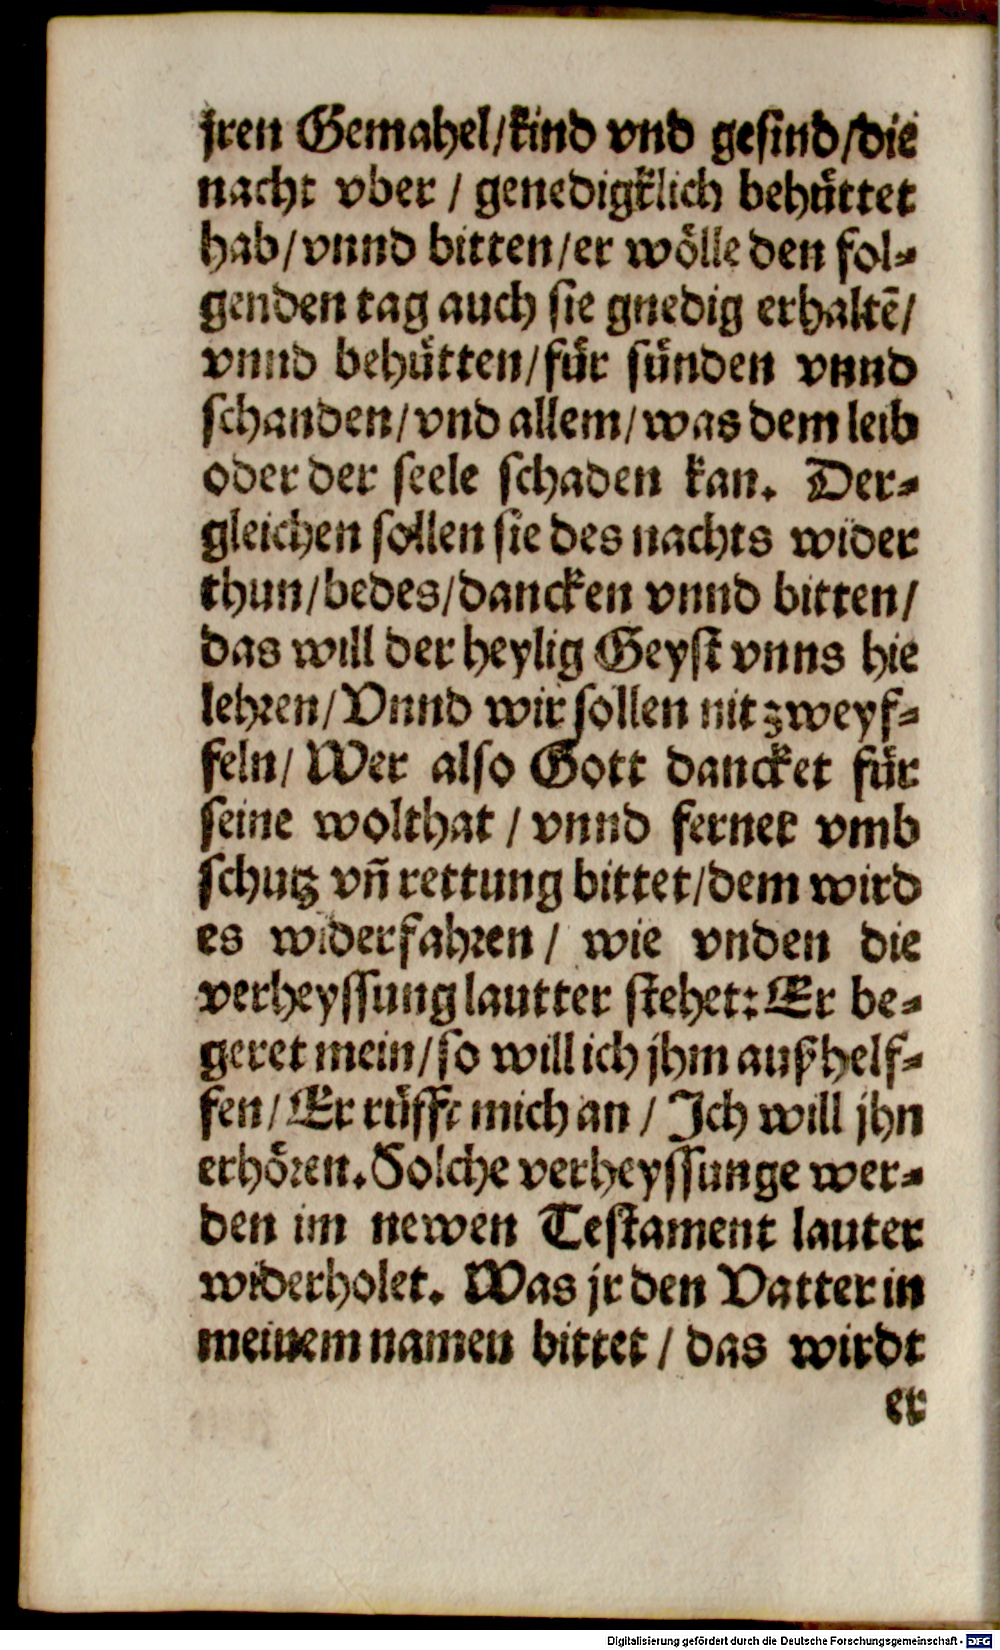 jren Gemahel/kind vnd gesind/die
nacht vber / genedigklich behüttet
hab/vnnd bitten/er wölle den fol⸗
genden tag auch sie gnedig erhaltē/
vnnd behütten/für sünden vnnd
schanden/vnd allem/was dem leib
oder der seele schaden kan. Der⸗
gleichen sollen sie des nachts wider
thun/bedes/dancken vnnd bitten/
das will der heylig Geyst vnns hie
lehren/Vnnd wir sollen nit zweyf⸗
feln/ Wer also Gott dancket für
seine wolthat / vnnd ferner vmb
schutz vñ rettung bittet/dem wird
es widerfahren / wie vnden die
verheyssung lautter stehet: Er be⸗
geret mein/so will ich jhm außhelf⸗
fen/ Er rüfft mich an / Ich will jhn
erhören. Solche verheyssunge wer⸗
den im newen Testament lauter
widerholet. Was jr den Vatter in
meinem namen bittet / das wirdt
er
Digitalisierung gefördert durch die Deutsche Forschungsgemeinschaft - DFG